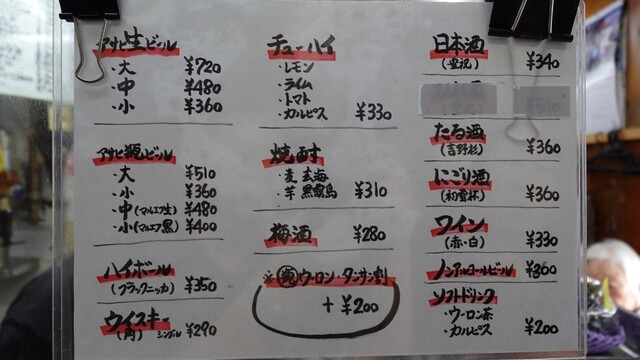 アサヒ生ビール
・大 ¥720
・中 ¥480
・小 ¥360
アサヒ瓶ビール
・大 ¥510
・小 ¥360
・中(マルエフ生) ¥480
・小(マルエフ黒) ¥400
ハイボール
(ブラックニッカ) ¥350
ウイスキー
(角) シングル ¥290
チューハイ
・レモン
・ライム
・トマト
・カルピス ¥330
焼酎
・麦 玄海
・芋 黒霧島 ¥310
梅酒 ¥280
※ウーロン・タンサン割
+ ¥200
日本酒
(豊祝) ¥340
¥510
たる酒
(吉野杉) ¥360
にごり酒
(初雪杯) ¥360
ワイン
(赤・白) ¥330
ノンアルコールビール ¥300
ソフトドリンク
・ウーロン茶
・カルピス ¥200